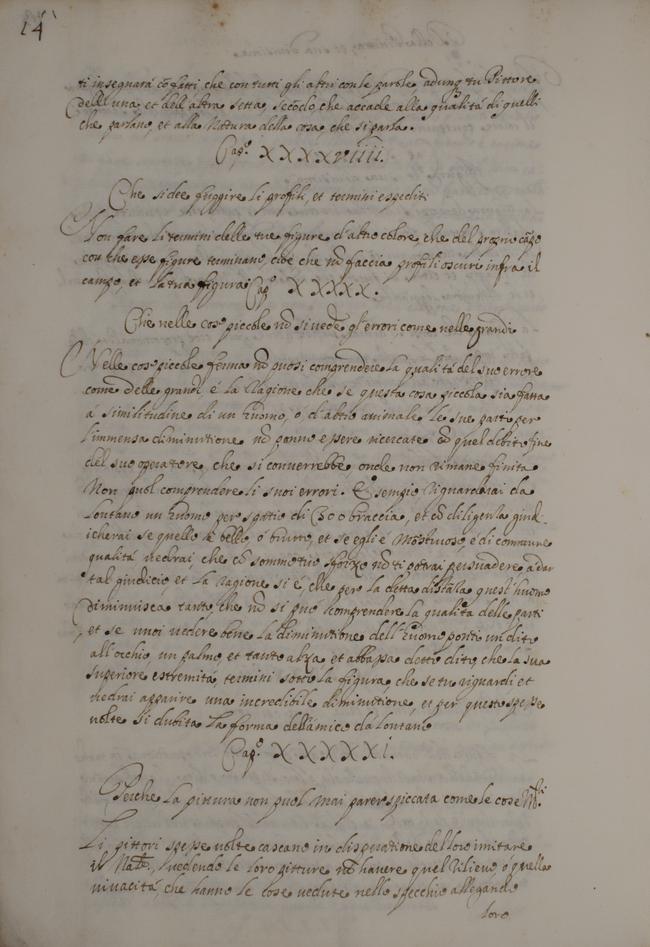 14
ti insegnará cõ fatti, che con tutti gli altri con le parole, adunq tu Pittore
dell'una, et dell'altra setta, secõdo, che accade alla qualitá di quelli
che parlano, et alla Natura della cosa, che si parla.
Cap.º XXXXviiii.
Che si dee fuggire li profili, et termini espediti
Non fare li termini delle tue figure d'altro colore, che del proprio cãpo
con che esse figure terminano, cioe che nõ faccia profili oscuri infra il
campo, et la tua figura Cap.º XXXXX.
Che nelle cose piccole nõ si vede gl'errori, come nelle grandi
Nelle cose piccole nõ puosi comprendere la qualitá del suo errore
come delle grandi é la Ragione che se questa cosa piccola sia fatta
a similitudine di un huomo, o, d'altro animale le sue parti per
l'immensa diminutione nõ ponno essere ricercate cõ quel debito fine
del suo operatore, che si converrebbe, onde non rimane finita
Non puol comprendere li suoi errori. Esempio riguardarai da
lontano un huomo per spatio di 300 braccia, et cõ diligenza giud-
icherai se quello é bello, ó brutto, et se egli é Mostruoso, é di commune
qualitá vedrai, che cõ sommo tuo sforzo nõ ti potrai persuadere a dar
tal giudicio, et la ragione si é, che per la detta distãza quest'huomo
diminuisca tanto, che nõ si puo comprendere la qualita delle parti
, et se vuoi vedere bene la diminutione dell'huomo poniti un dito
all'occhio, un palmo, et tanto alza et abbassa detto dito, che la sua
superiore estremitá, termini sotto la figura, che se tu riguardi et
vedrai apparire una incredibile diminutione, et per questo spesse
volte si dubita la forma dell'amico da lontano
Cap.º XXXXXi.
Perche la pittura non puol mai parere spiccata come le cose Nãli.
Li pittori spesse volte cascano in disperatione del loro imitare
il Natle., vedendo le loro pitture nõ havere quel rilievo, ó quella
vivacitá, che hanno le cose vedute nello specchio allegando
loro